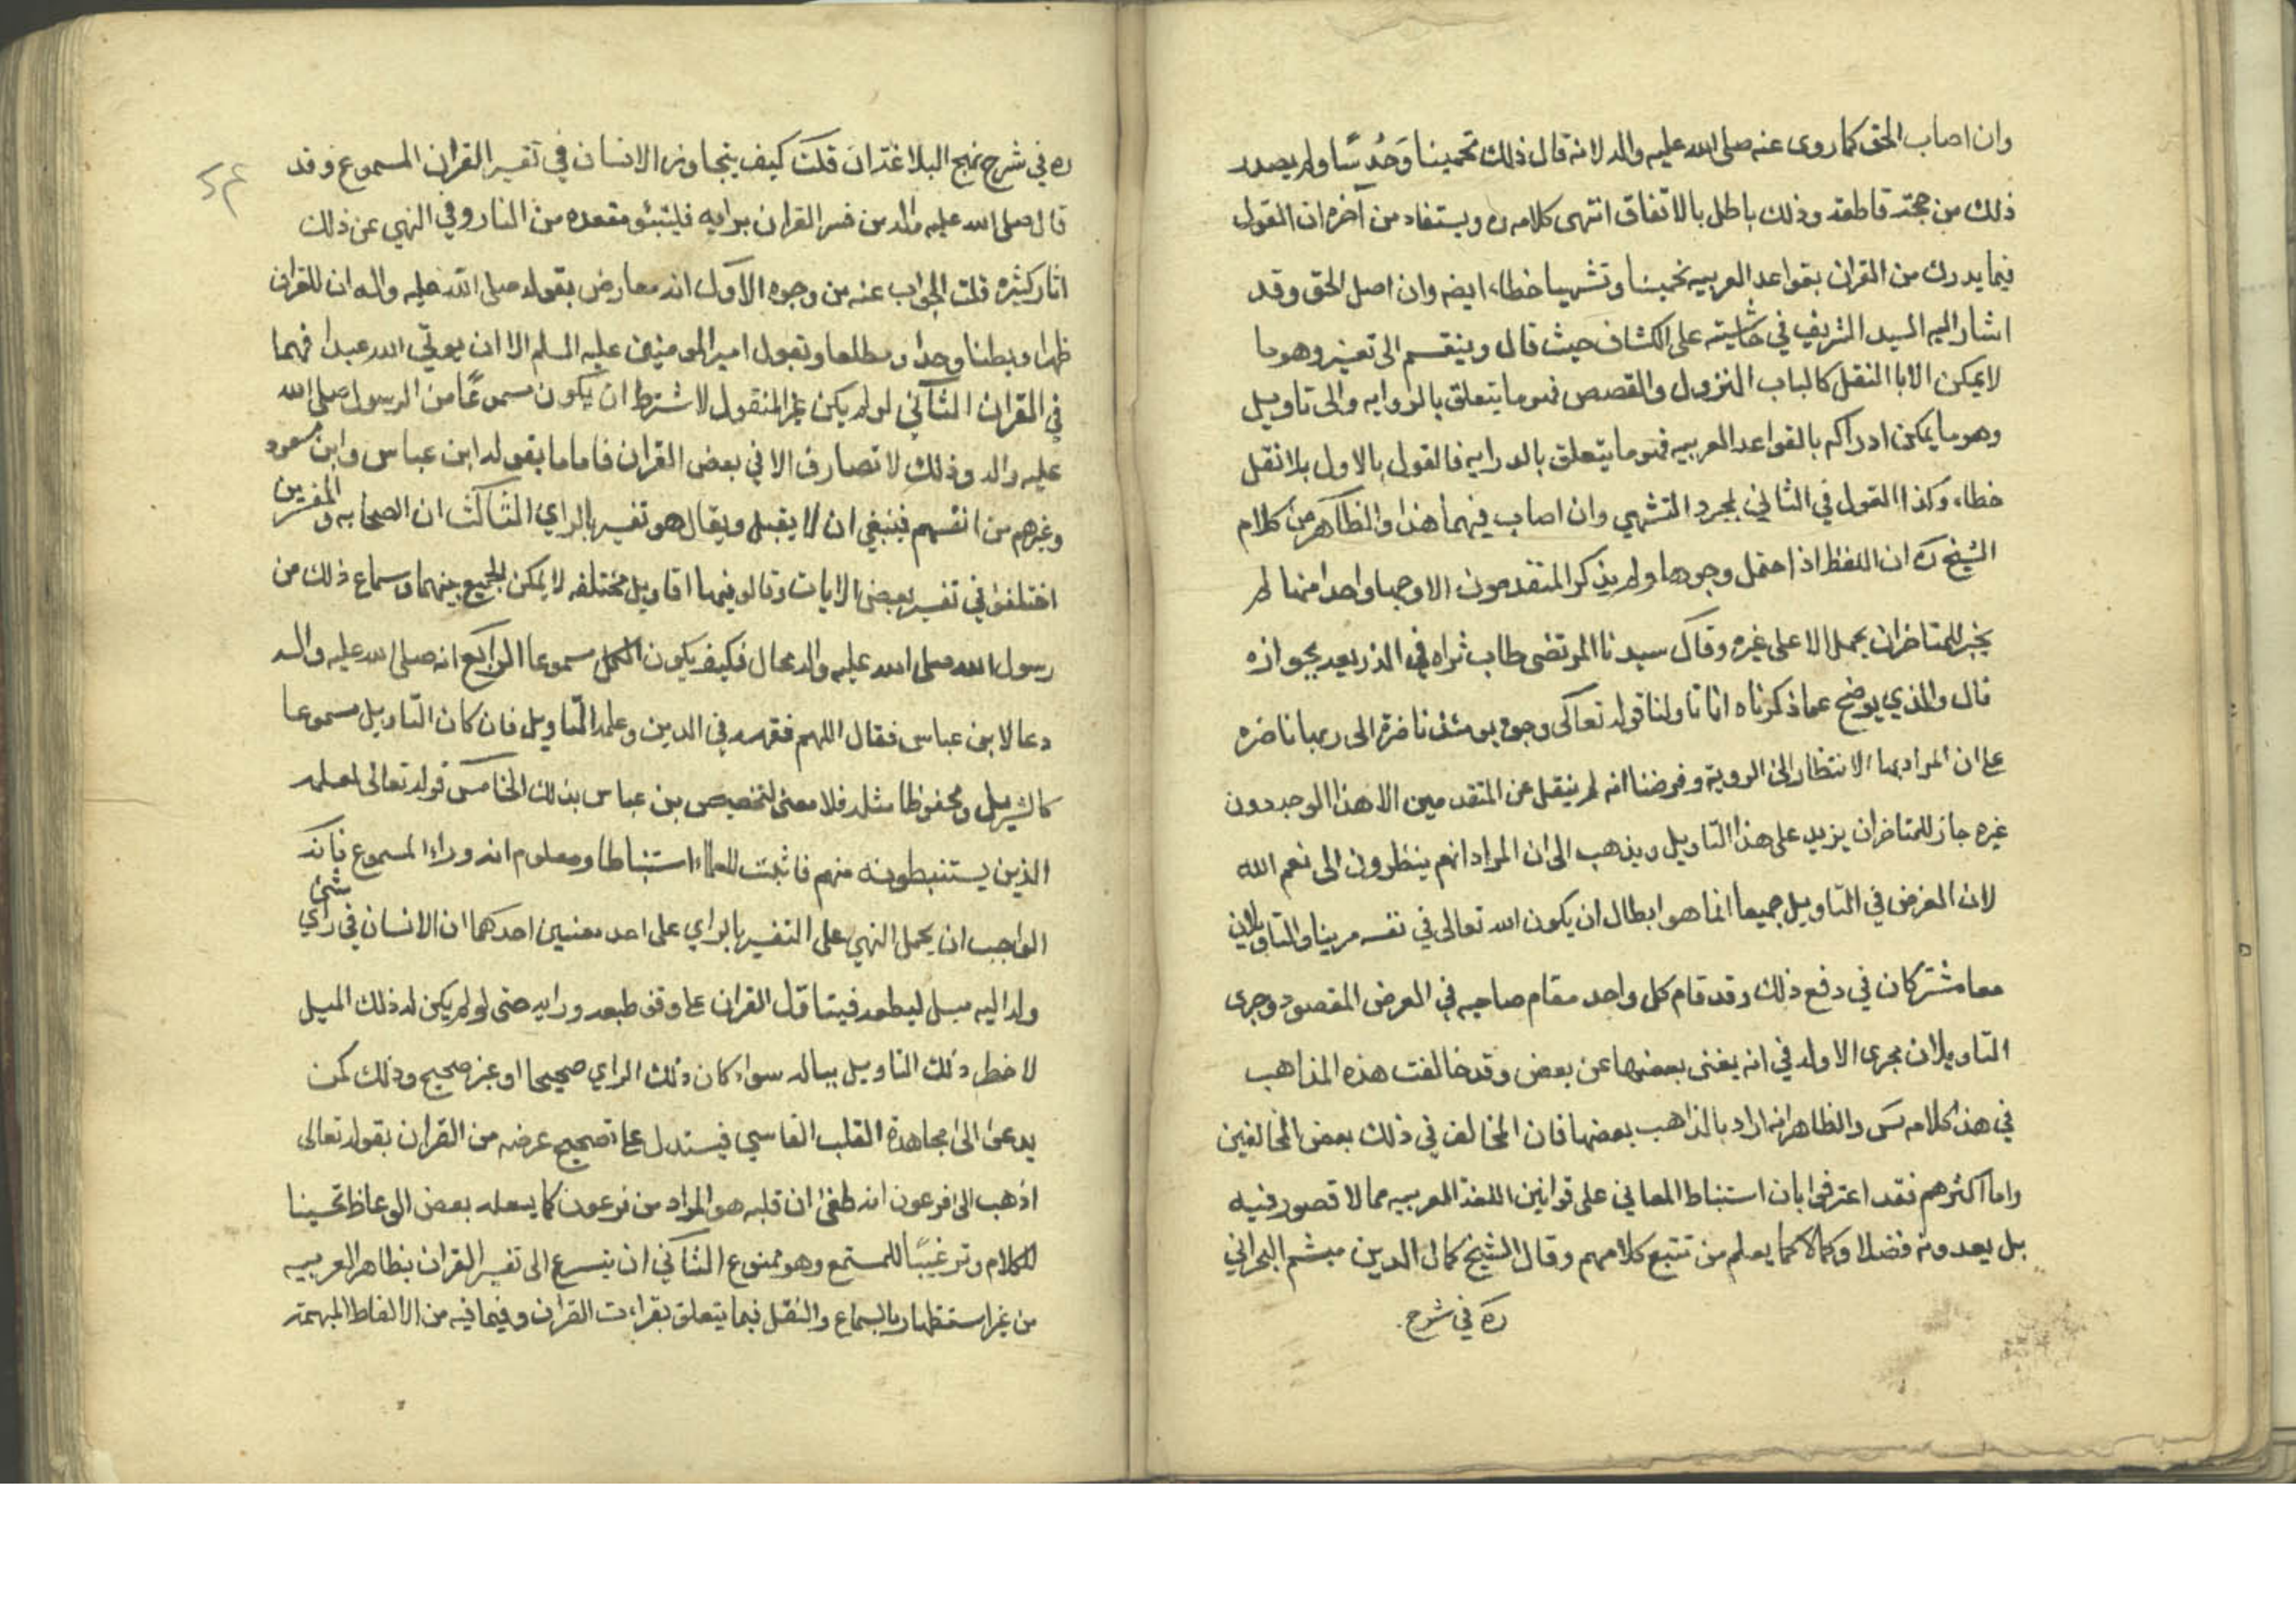 وان اصاب الحق كما روى عنه صلى الله عليه واله لانه قال ذلك تخمينا وَحُدسًا ولم يصدر
ذلك من حجة قاطعة وذلك باطل بالاتفاق انتهى كلامه ره ويستفاد من آخره ان القول
فيما يدرك من القران بقواعد العربيه تخمينا وتشهيا خطاء ايضه وان اصل الحق وقد
اشار اليه السيد الشريف في حاشيته على الكشاف حيث قال وينقسم الى تفسير وهو ما
لا يمكن الا باالنقل كالباب النزول والقصص فهو ما يتعلق بالروايه والى تاويل
وهو ما يمكن ادراكه بالقواعد العربيه فهو ما يتعلق بالدرايه فالقول بالاول بلا نقل
خطاء وكذا القول في الثاني لمجرد التشهي وان اصاب فيهما هذا والظاهر من كلام
الشيخ ره ان اللفظ اذا احتمل وجوها ولم يذكر المتقدمون الا وجها واحدا منها لم
يجز للمتاخر ان يحمل الا على غيره وقال سيدنا المرتضى طاب ثراه في الذريعه بجوازه
قال والذي يوضح عما ذكرناه انا تاولنا قوله تعالى وجوه يومئذ ناضرة الى ربها ناضره
على ان المراد بها الانتظار الى الروية وفرضنا انه لم ينقل عن المتقدمين الا هذا الوجه دون
غيره جاز للمتاخر ان يزيد على هذا التاويل ويذهب الى ان المراد انهم ينظرون الى نعم الله
لان الغرض في التاويل جميعا انما هو ابطال ان يكون الله تعالى في نفسه مريئا والتاويلان
معا مشتركان في دفع ذلك وقد قام كل واحد مقام صاحبه في الغرض المقصود وجرى
التاويلان مجرى الاوله في انه يغنى بعضها عن بعض وقد خالفت هذه المذاهب
في هذا كلامه سَ والظاهر انه اراد بالذاهب بعضها فان المخالف في ذلك بعض المخالفين
واما اكثرهم فقد اعترفوا بان استنباط المعاني على قوانين اللغة العربيه مما لا قصور فيه
بل يعدونه فضلا وكمالا كما يعلم من تتبع كلامهم وقال الشيخ كمال الدين ميثم البحراني
ره في شرح
ره في شرح نهج البلاغة ان قلت كيف يتجاوز الانسان في تفسير القران المسموع وقد
قال صلى الله عليه واله من فسر القران برايه فليتبئو مقعده من النار وفي النهي عن ذلك
اثار كثيره قلت الجواب عنه من وجوه الاول انه معارض بقوله صلى الله عليه واله ان للقران
ظهرا وبطنا وحدا ومطلعا وبقول امير المومنين عليه السلم الا ان يوتي الله عبدا فهما
في القران الثاني لو لم يكن غير المنقول لاشترط ان يكون مسموعًا من الرسول صلى الله
عليه واله وذلك لا تصارف الا في بعض القران فاما ما يقوله ابن عباس وابن مسعود
وغيرهم من انفسهم فينبغي ان لا يقبل ويقال هو تفسير بالراي الثالث ان الصحابه والمفسرين
اختلفوا في تفسير بعض الايات وقالو فيها اقاويل مختلفه لا يمكن الجميع بينهما وسماع ذلك من
رسول الله صلى الله عليه واله محال فكيف يكون الكل مسموعا الرابع انه صلى الله عليه واله
دعا لابن عباس فقال اللهم فقهه في الدين وعلمه التاويل فان كان التاويل مسموعا
كالتنزيل ومحفوظا مثله فلا معنى لتخصيص بن عباس بذلك الخامس قوله تعالى لعلمه
الذين يستنبطونه منهم فاثبت للعلماء استنباطا ومعلوم انه وراء المسموع فاذا
الواجب ان يحمل النهي على التفسير بالراي على احد معنيين احدكهما ان الانسان في شئ راي
وله اليه ميل ليطعه فيتاول القران على وفق طبعه ورايه حتى لو لم يكن له ذلك الميل
لا خطر ذلك التاويل بباله سواء كان ذلك الراي صحيحا او غير صحيح وذلك كمن
يدعو الى مجاهدة القلب القاسي فيستدل على تصحيح غرضه من القران بقوله تعالى
اذهب الى فرعون انه طغى ان قلبه هو المراد من فرعون كما يسعله بعض الوعاظ تحسينا
للكلام وترغيبًا للمستمع وهو ممنوع الثاني ان يتسرع الى تفسير القران بظاهر العربيه
من غير استظهار بالسماع والنقل فيما يتعلق بقراءت القران وفيما فيه من الالفاظ المبهمة